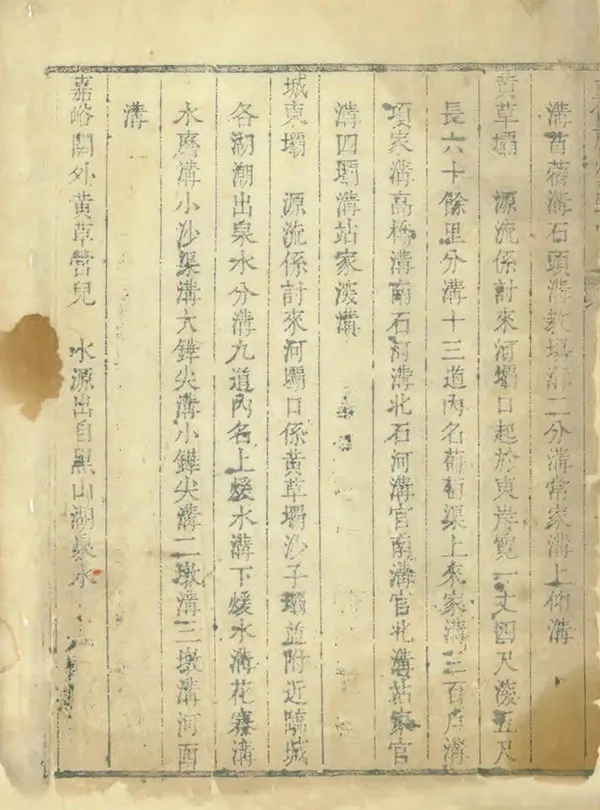 溝首蓿溝石頭溝教場溝二分溝常家溝上仰溝
黄草壩 源流係討來河壩口起於東岸寬一丈四尺淩五尺
長六十餘里分溝十三道內名葡萄渠上來家溝三百戶溝
項家溝高橋溝南石河溝北石河溝官南溝官北溝站家官
溝四壩溝站家淩溝
城東壩 源流係討來河壩口係黄草壩沙子壩並附近臨城
各湖潮出泉水分溝九道內名上煖水溝下煖水溝花寨溝
水磨溝小沙渠溝大鏵尖溝小鏵尖溝二墩溝三墩溝河西
溝
嘉峪關外黄草營兒 水源出自黑山湖泉水